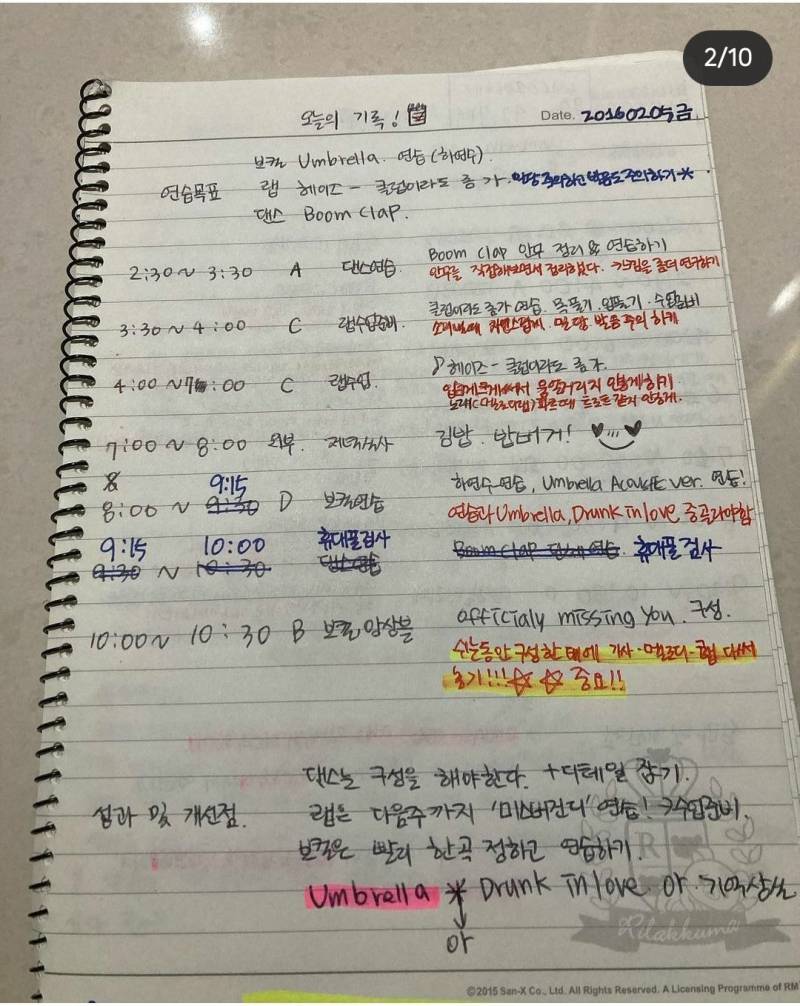 2/10
오늘의 기록!
Date. 20160205금
보컬 Umbrella. 연습(하연수).
연습목표 랩 헤이즈 - 클럽이라도 좀 가. 밀당주의하고 발음도 주의하기*
댄스 Boom Clap.
2:30~3:30 A 댄스연습. Boom Clap 안무 정리 & 연습하기
안무를 직접해보면서 정리하였다. 느낌을 좀더 연구하기
3:30~4:00 C 랩수업준비. 클럽이라도 좀가 연습. 목풀기. 입풀기. 수업준비
소리낼때 밀당. 발음주의 하기
4:00~7:00 C 랩수업. ♪헤이즈 - 클럽이라도 좀 가.
입을 크게 웅얼거리지 않게하기
노래(멜로디랩)파트때 트로트같지 않게.
7:00~8:00 외부. 저녁식사 김밥. 밥버거!
8
9:15
8:00~9:30 D 보컬연습 하연수-연습, Umbrella Acoustic ver. 연습!
연습과 Umbrella, Drunk in love 중 골라야함
9:15 10:00 휴대폴검사
9:30~10:30 댄스연습 Boom Clap 연습. 휴대폴검사
10:00~10:30 B 보컬앙상블 officialy missing you. 구성.
쉬는동안 구성한 탭에 가사·멜로디·랩 다써
놓기!!!☆☆ 중요!!
댄스는 구성을 해야한다. +디테일 잡기.
성과 및 개선점. 랩은 다음주까지 '미스버건디' 연습! 수업준비.
보컬은 빨리 한곡 정하고 연습하기.
Umbrella * Drunk in love or 기억상실
or
Rilakkuma
©2015 San-X Co., Ltd. All Rights Reserved. A Licensing Programme of RM